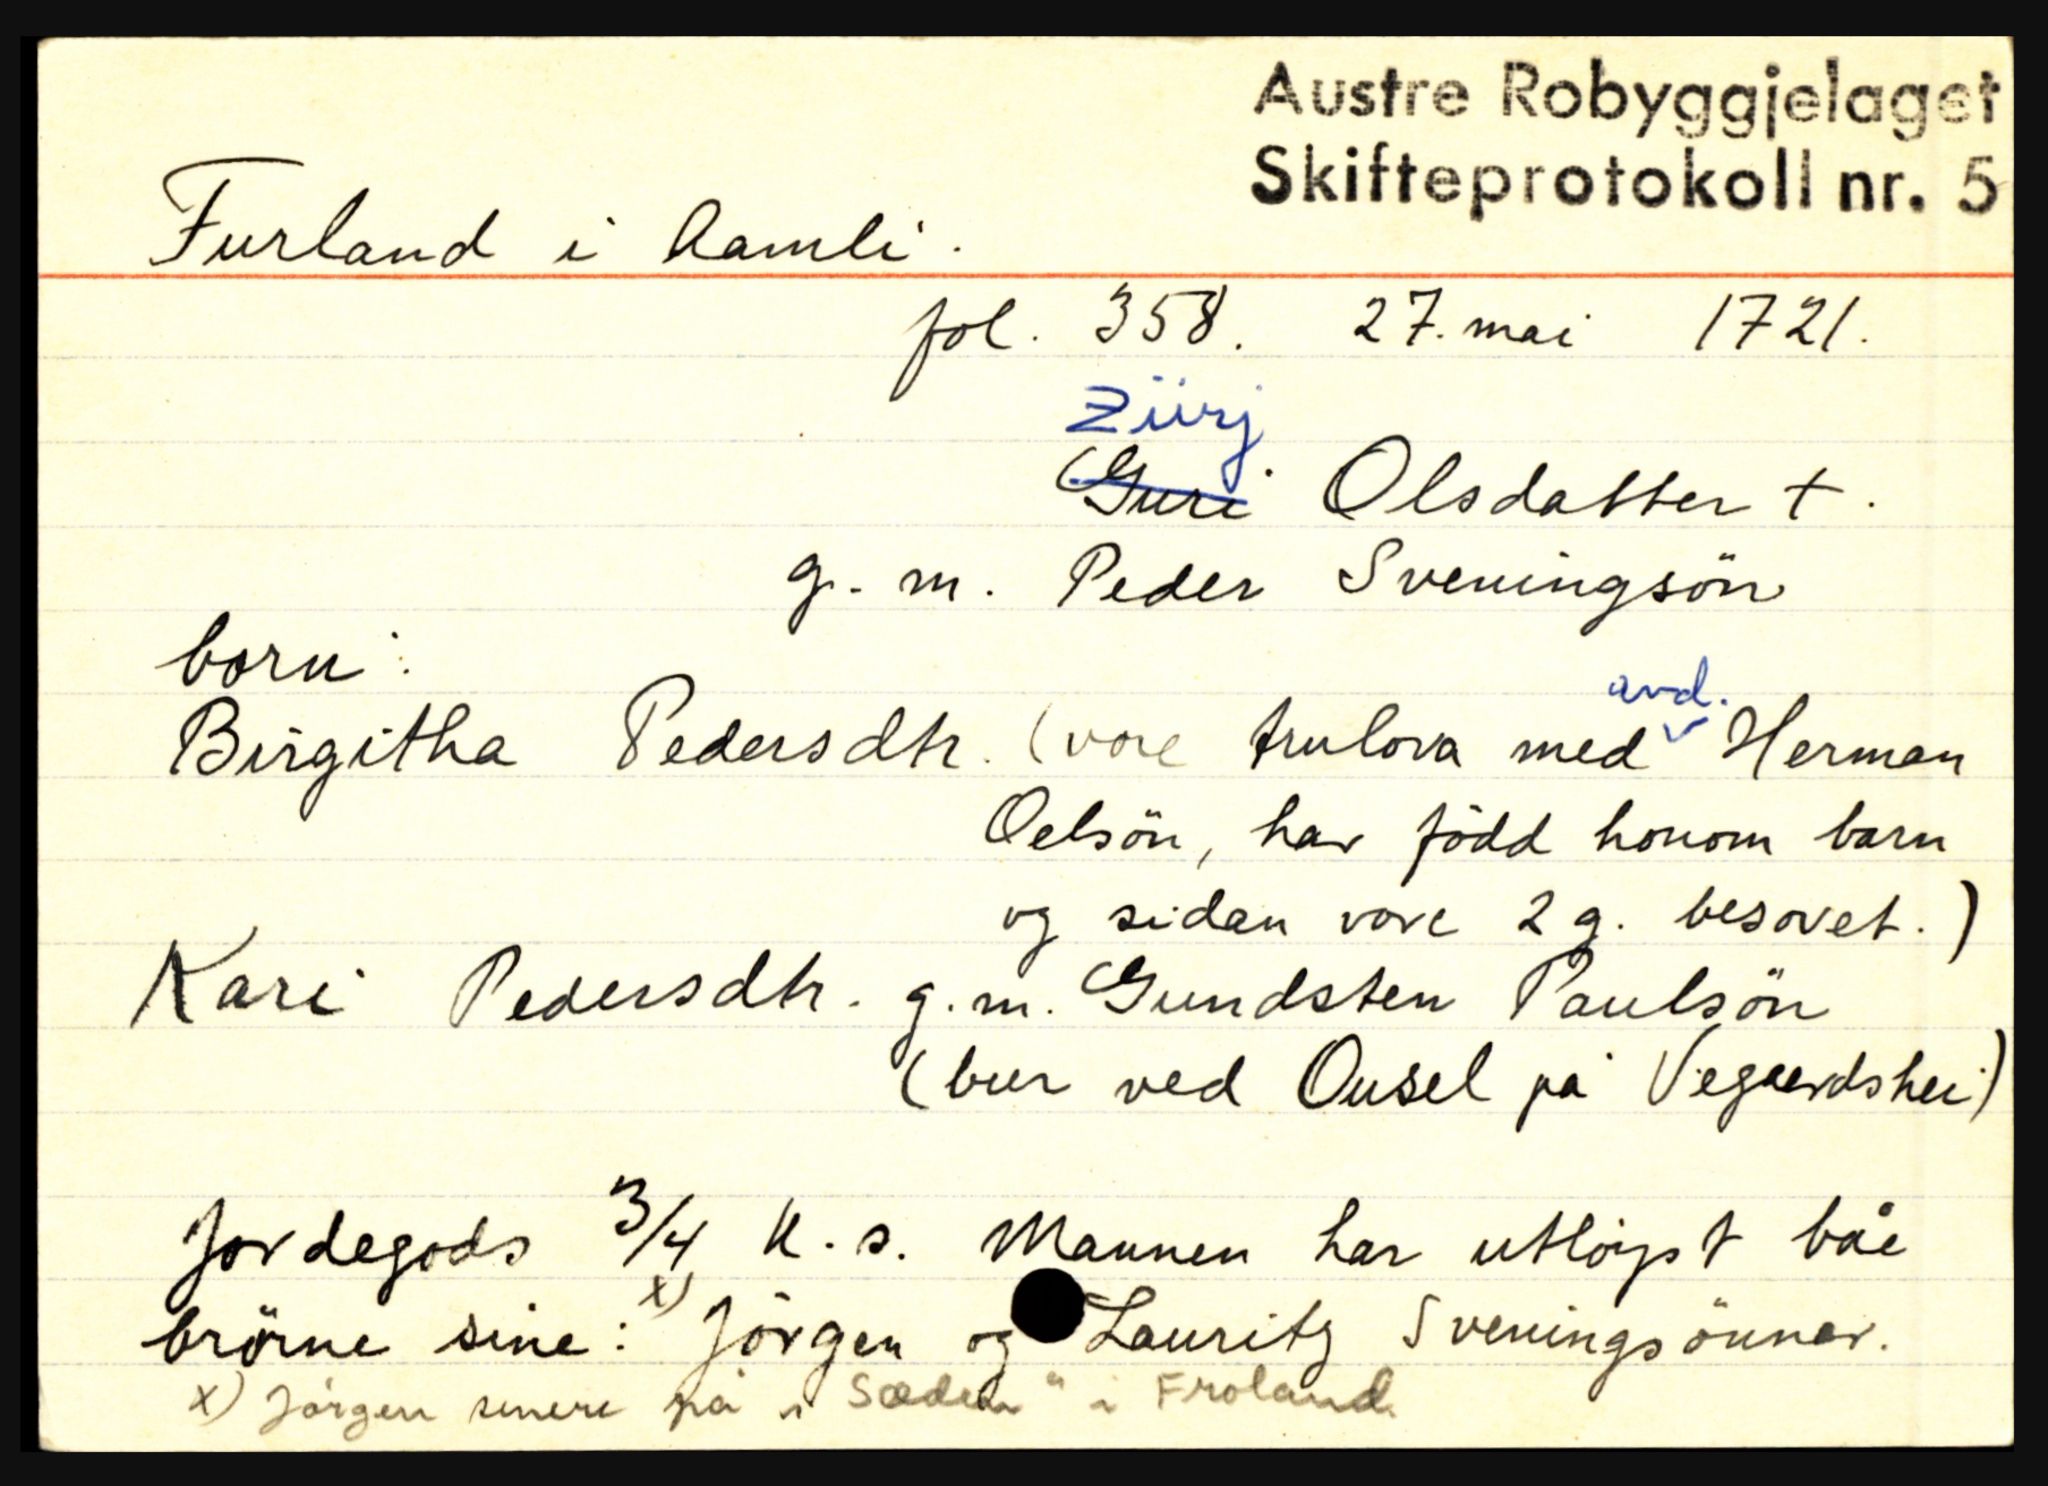 Austre Robyggjelaget
Skifteprotokoll nr. 5
Furland i Aamli.
fol. 358. 27. mai 1721.
Ziirj
Guri Olsdatter †.
g. m. Peder Sveningsön
born:
Birgitha Pedersdtr. (vore trulova med avd. Herman
Oelsön, har född honom barn
og sidan vore 2 g. besovet.)
Kari Pedersdtr. g. m. Gundsten Paulsön
(bur ved Ousel på Vegaardshei)
Jordegods 3/4 k. s. Mannen har utlöyst båe
brörne sine: x) Jörgen og Lauritz Sveningsönner.
x) Jörgen senere på "Sæden" i Froland